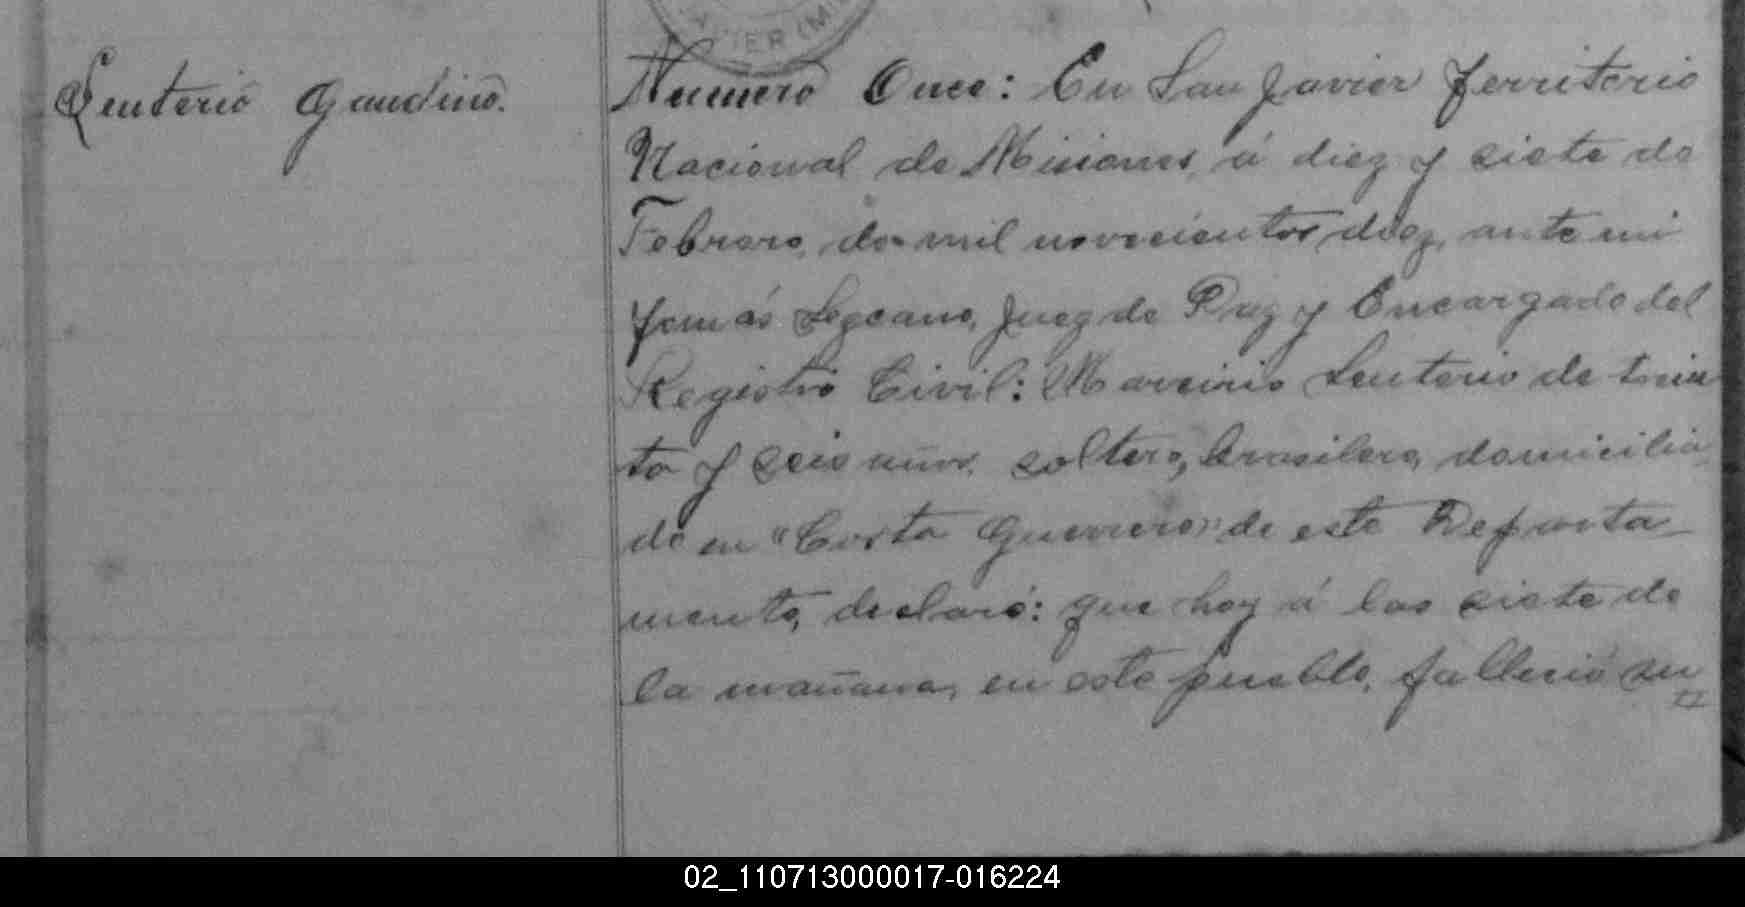 Leuterio Gaudino.
VIER (MI
Numero Once: En San Javier Territorio
Nacional de Misiones, á diez y siete de
Febrero, de mil novecientos diez, ante mi
Tomás Lezcano, Juez de Paz y Encargado del
Registro Civil: Marcirio Leuterio de trein
ta y seis años, soltero, brasilero, domicilia
do en "Costa Guerrero" de este Departa
mento, declaró: que hoy á las siete de
la mañana, en este pueblo, falleció su
02_110713000017-016224